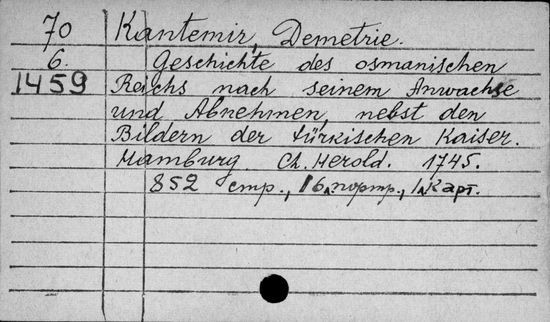 70 Kantemir, Demetrie.
6. Geschichte des osmanischen
1459 Reichs nach seinem Anwachse
und Abnehmen, nebst den
Bildern der türkischen Kaiser.
Hamburg. Ch. Herold. 1745.
852 стр., 16 л. портр., 1 л. карт.